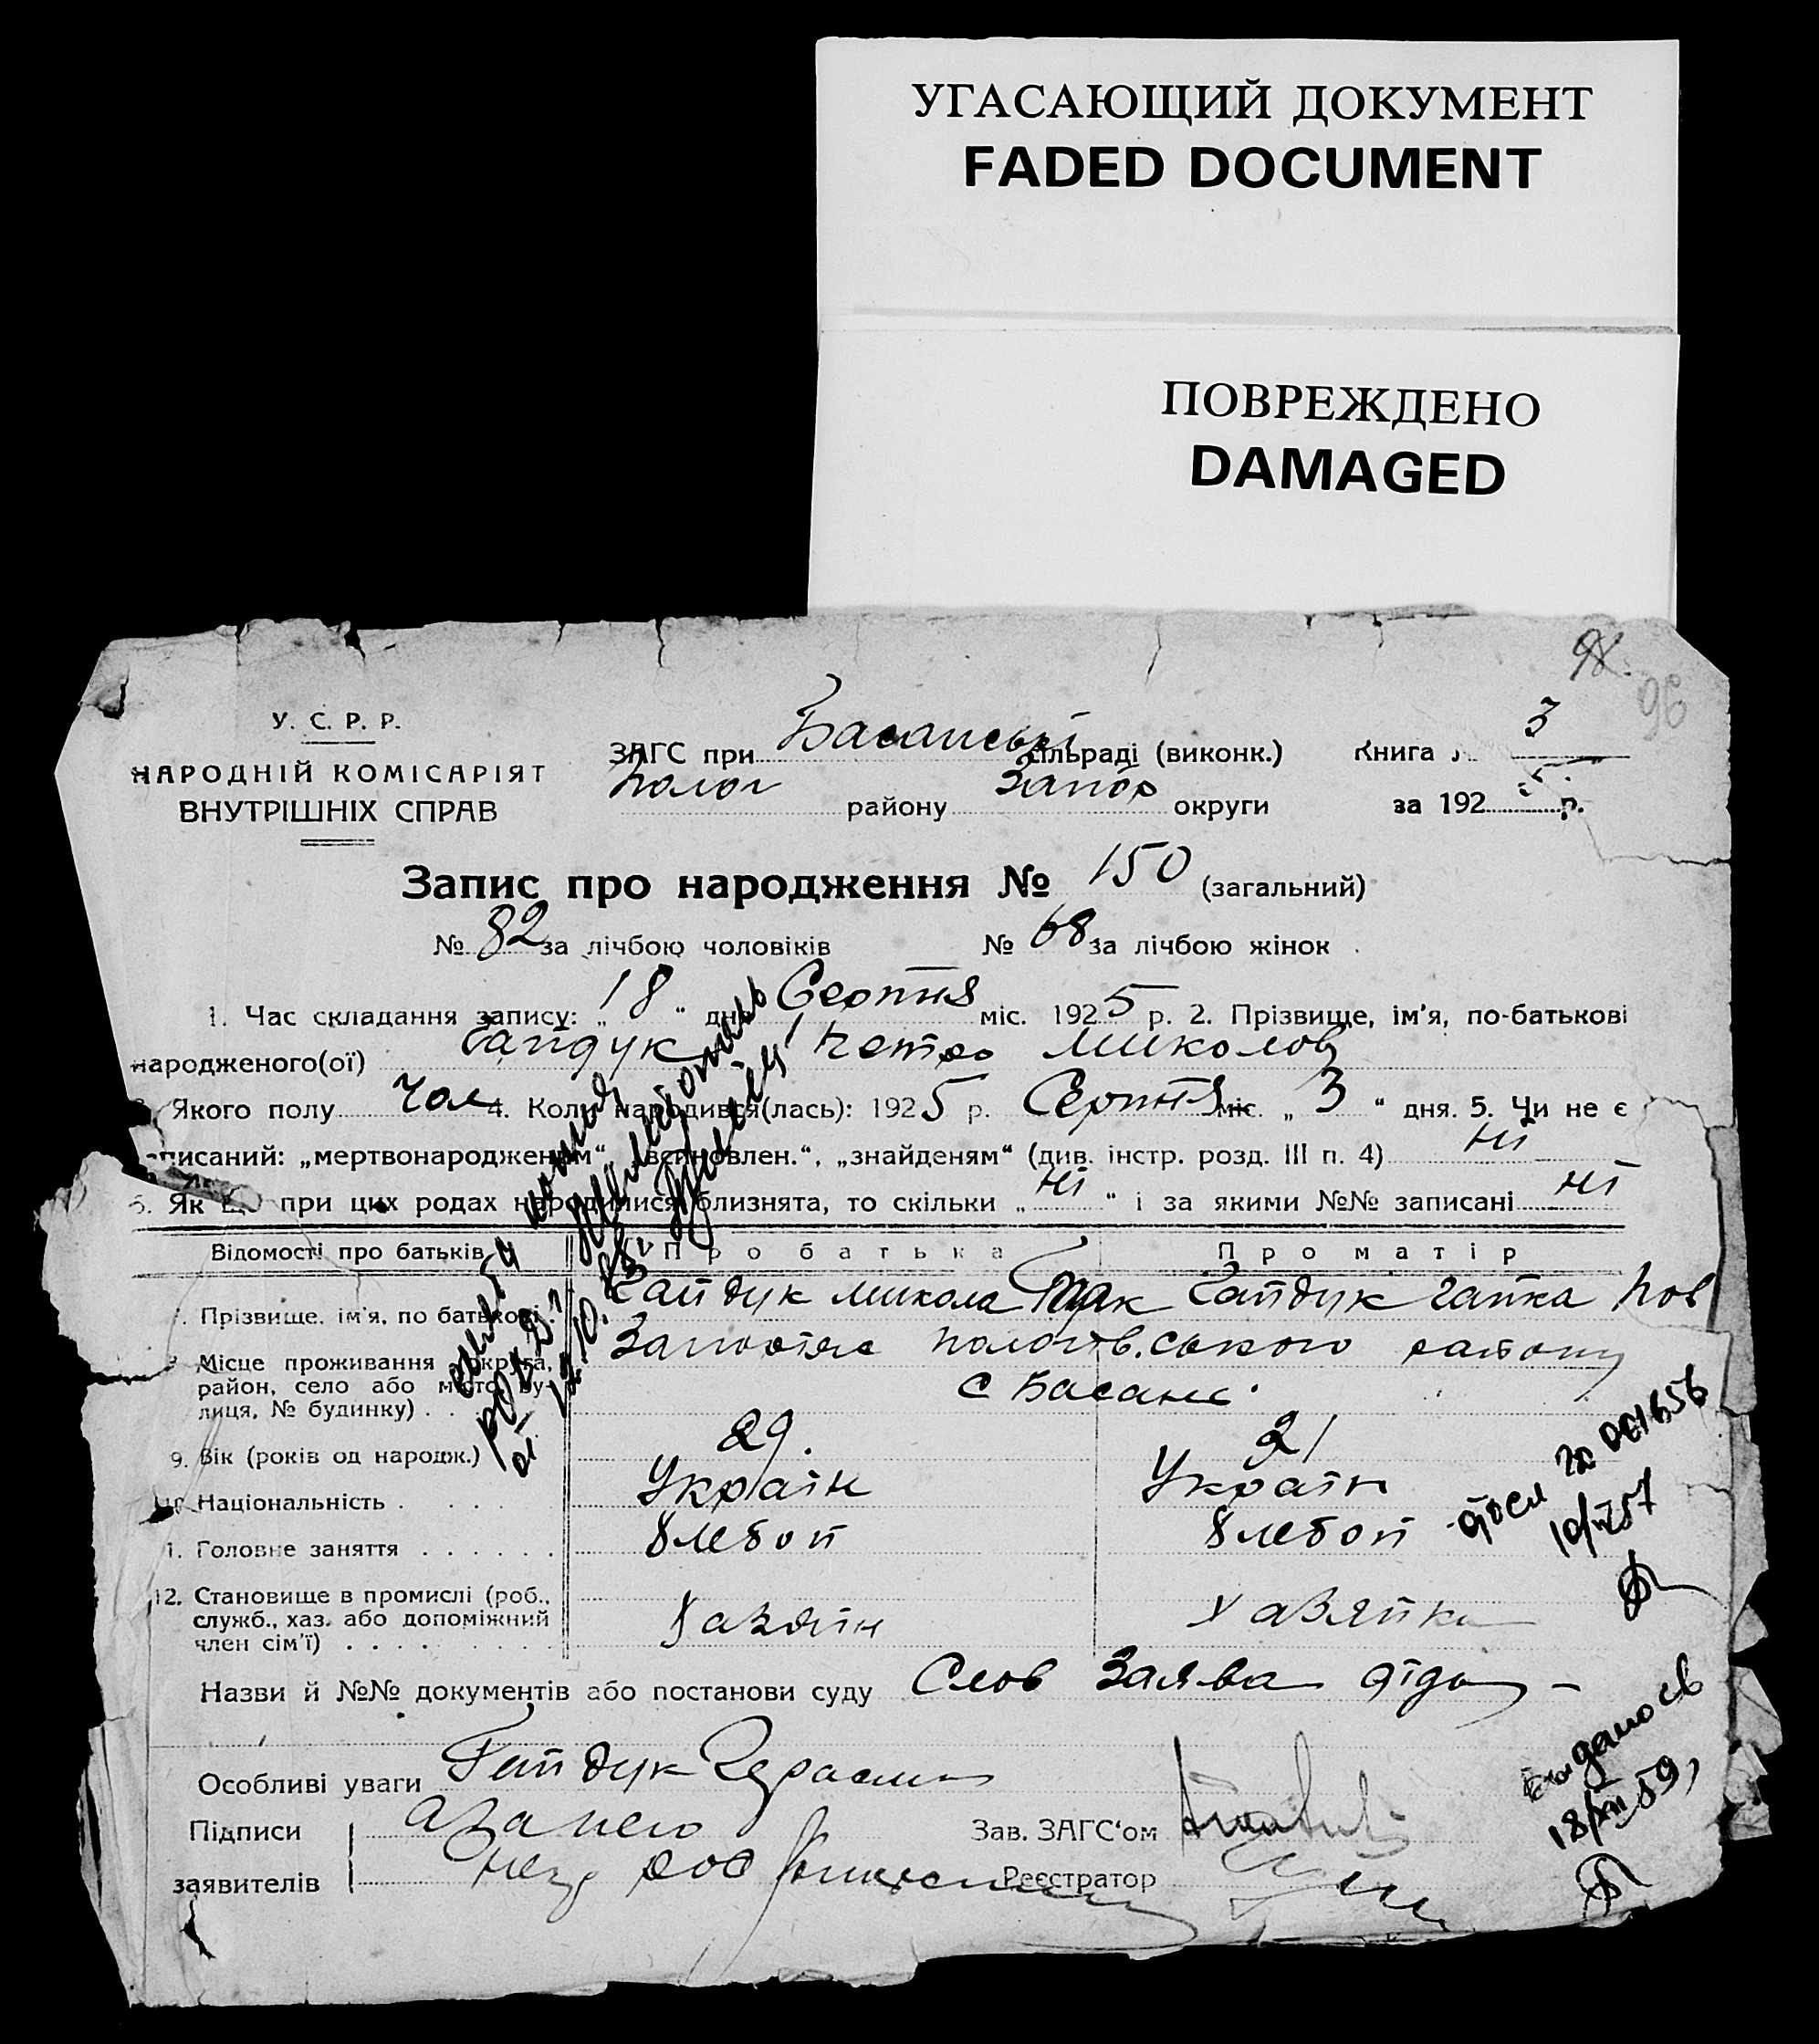 УГАСАЮЩИЙ ДОКУМЕНТ
FADED DOCUMENT
ПОВРЕЖДЕНО
DAMAGED
96
У. С. Р. Р.
НАРОДНІЙ КОМІСАРІЯТ
ВНУТРІШНІХ СПРАВ
ЗАГС при Басанські сільраді (виконк.) Книга 3
Полог району Запор округи за 192 5 р.
Запис про народження № 150 (загальний)
№ 82 за лічбою чоловіків № 68 за лічбою жінок
1. Час складання запису: „ 18 “ дня Серпня міс. 192 5 р. 2. Прізвище, ім'я, по-батькові
народженого(ої) Гайдук Петро Миколов
Якого полу Чол 4. Коли народився(лась): 192 5 р. Серпня міс. „ 3 “ дня. 5. Чи не є
записаний: „мертвонародженим“, „встановлен.“, „знайденям“ (див. інстр. розд. III п. 4) Ні
6. Як що при цих родах народилися близнята, то скільки „ Ні “ і за якими №№ записані Ні
Відомості про батьків Про батька Про матір
Прізвище, ім'я, по батькові Гайдук Микола Гайдук Гапка
Місце проживання округа,
район, село або місто, ву-
лиця, № будинку) Запоріжс Пологів.ського району
с Басань
9. Вік (років од народж.) 29. 21
10. Національність Україн Україн
11. Головне заняття Хлебоп Хлебоп
12. Становище в промислі (роб.,
служб., хаз. або допоміжний
член сім'ї) Хазяїн Хазяйка
Назви й №№ документів або постанови суду Слов Заява діда
Особливі уваги Гайдук Герасим
Підписи
заявителів
Зав. ЗАГС'ом
Реєстратор
10/757
Выдано св
18/XII 59